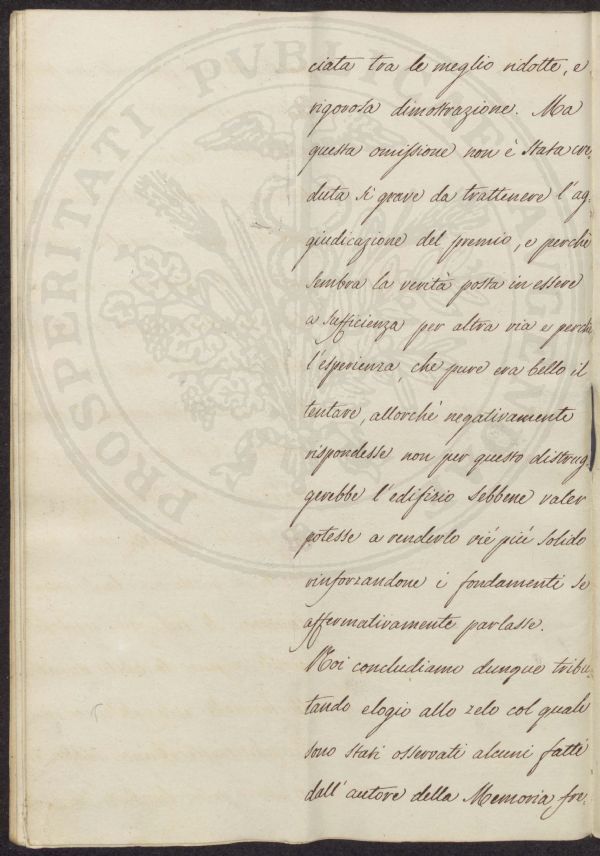 ciata tra le meglio ridotte, e
rigorosa dimostrazione. Ma
questa omissione non è stata cre,
duta sì grave da trattenere l'ag,
giudicazione del premio, e perchè
sembra la verità posta in essere
a sufficienza per altra via e perchè
l'esperienza, che pure era bello il
tentare, allorchè negativamente
rispondesse non per questo distrug,
gerebbe l'edifizio sebbene valer
potesse a renderlo vié più solido
rinforzandone i fondamenti se
affermativamente parlasse.
Noi concludiamo dunque tribu,
tando elogio allo zelo col quale
sono stati osservati alcuni fatti
dall'autore della Memoria, for,
PROSPERITATI PUBLICAE AUGENDAE